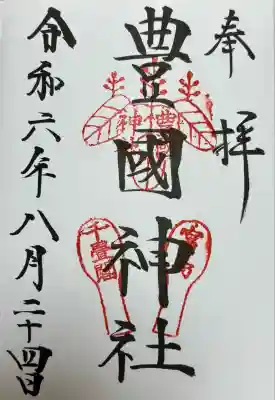 奉拝
豊國神社
千畳閣
宮島
令和六年八月二十四日